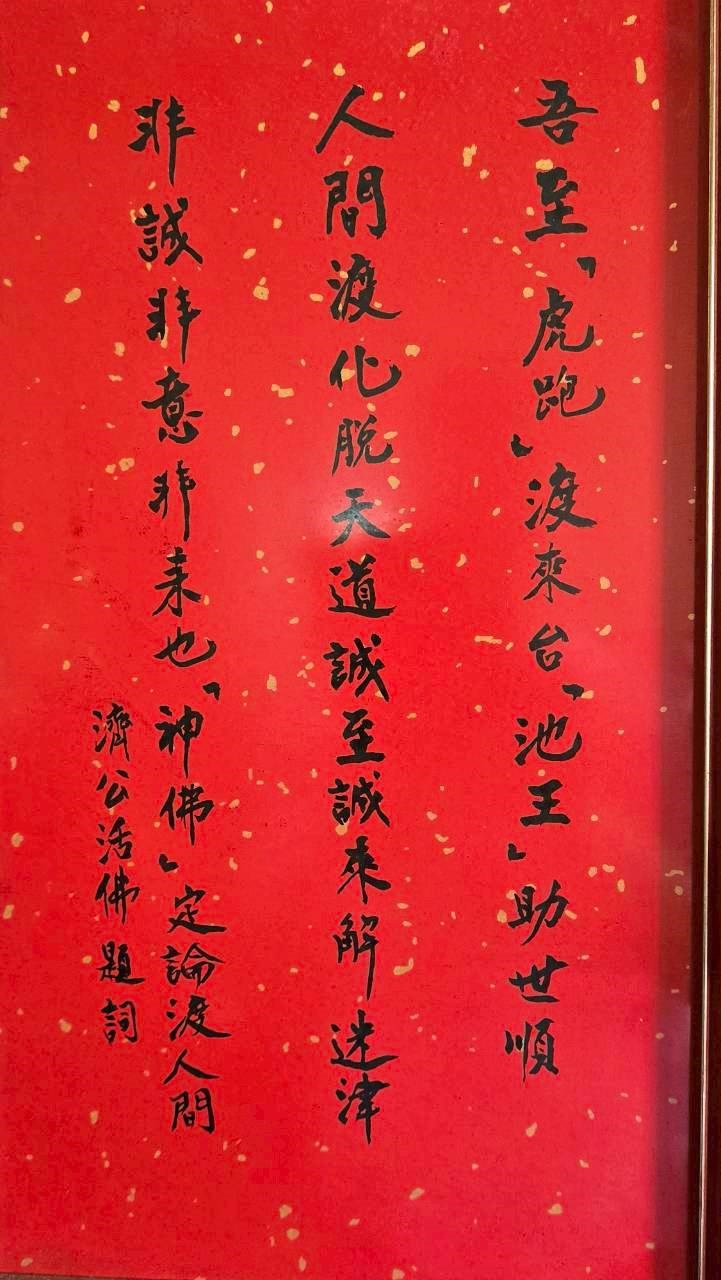 吾至「虎跑」渡來台「池王」助世順
人間渡化脫天道誠至誠來解迷津
非誠非意非来也「神佛」定論渡人間
濟公活佛題詞